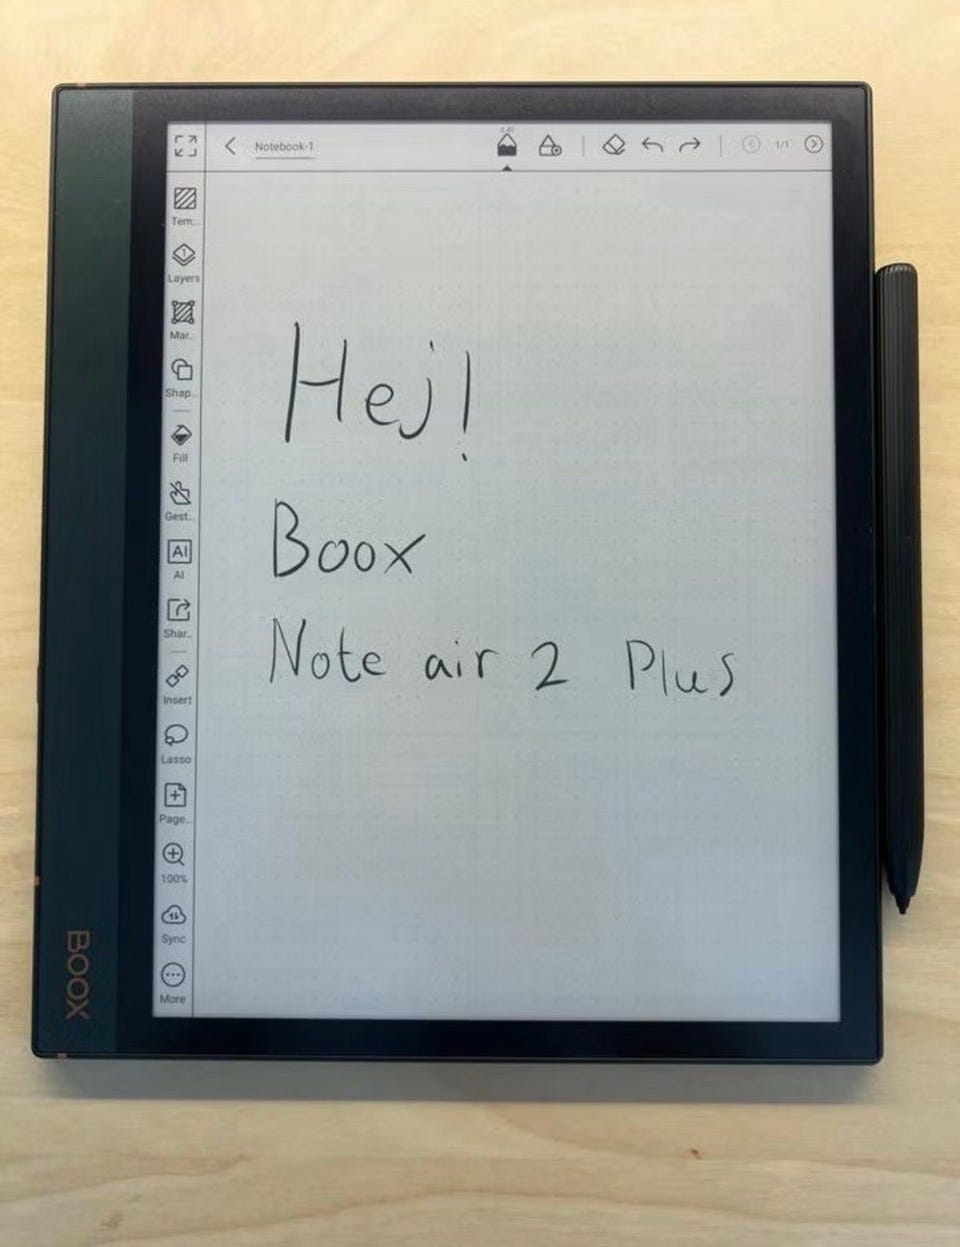 Notebook-1
0.45
1/1
Tem..
1
Layers
Mar..
Shap..
Fill
Gest..
AI
AI
Shar..
Insert
Lasso
Page..
100%
Sync
More
Hej!
Boox
Note air 2 Plus
BOOX